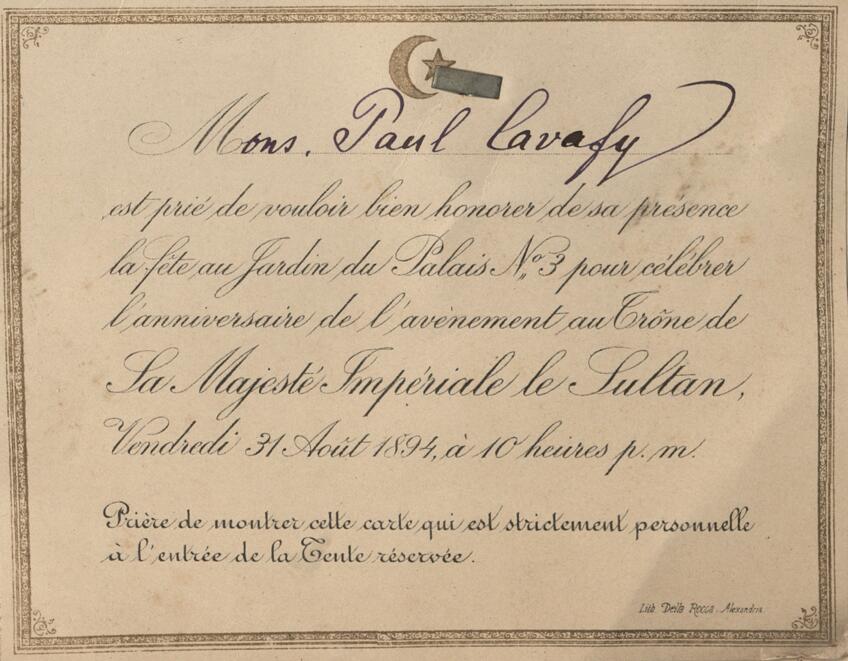 Mons. Paul Cavafy
est prié de vouloir bien honorer de sa présence
la fête au Jardin du Palais No. 3 pour célébrer
l'anniversaire de l'avènement au Trône de
Sa Majesté Impériale le Sultan,
Vendredi 31 Août 1894, à 10 heures p. m.
Prière de montrer cette carte qui est strictement personnelle
à l'entrée de la Tente réservée.
Lith. Della Rocca. Alexandrie.